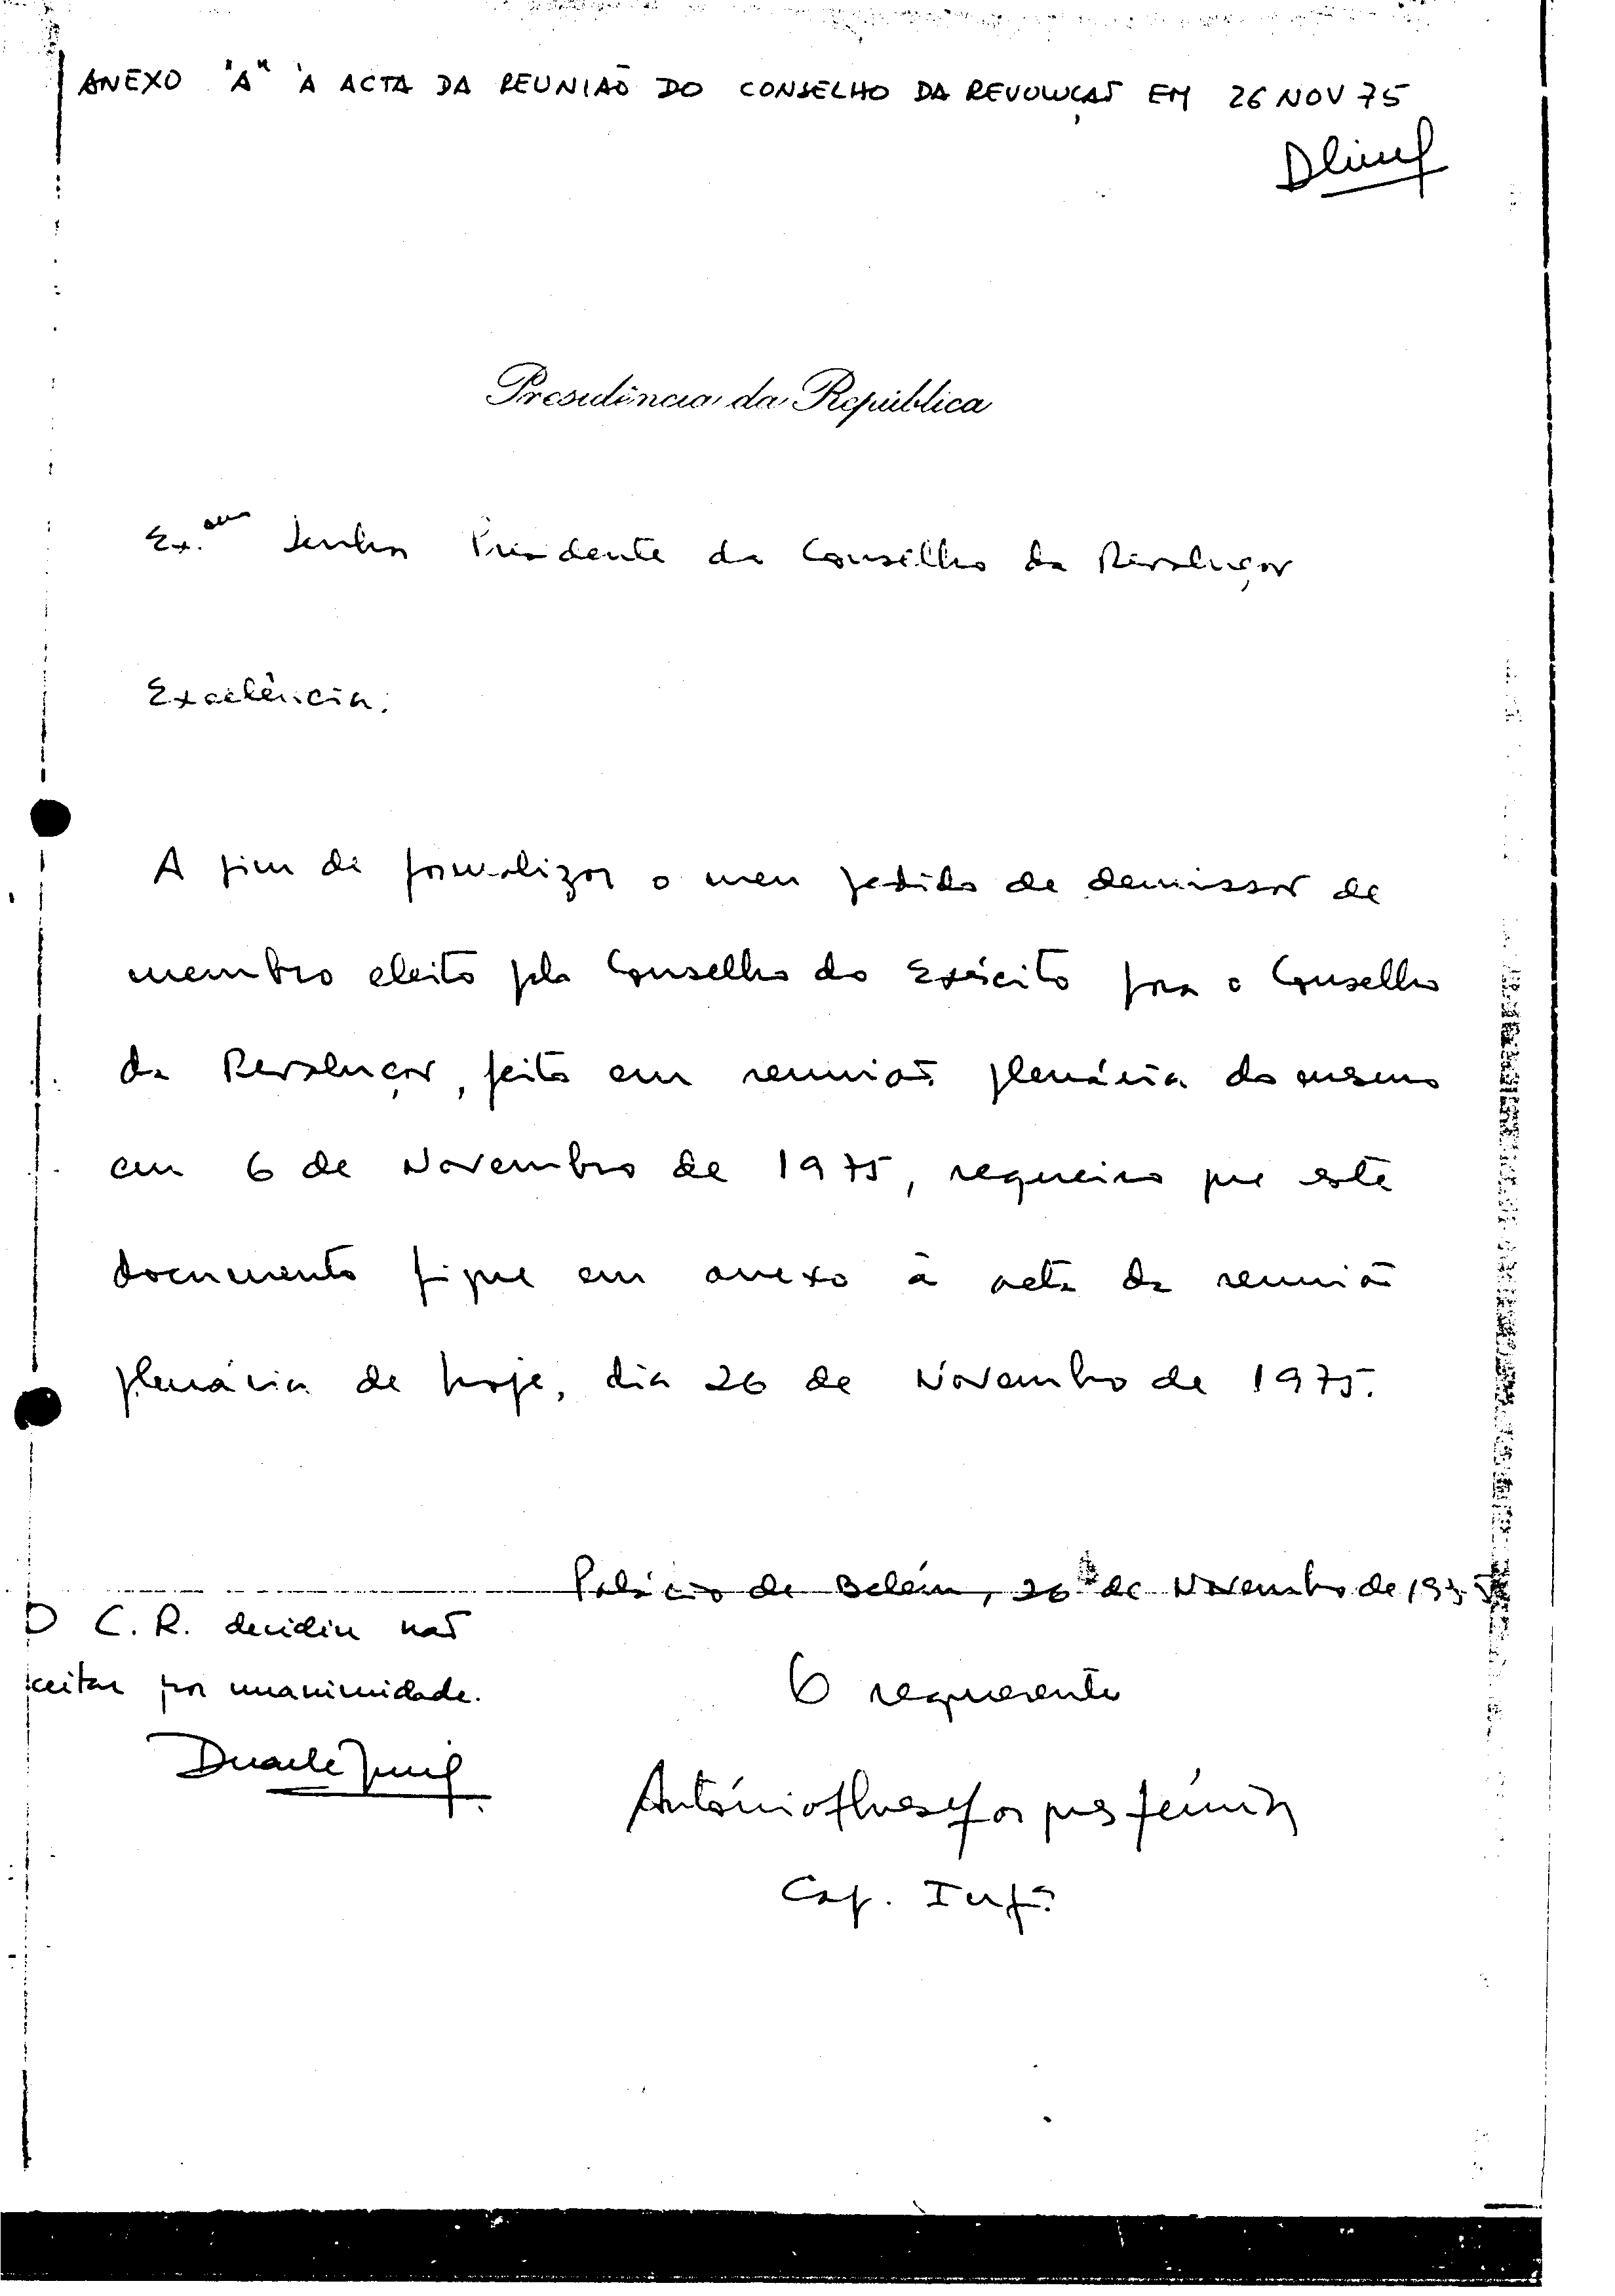 ANEXO "A" À ACTA DA REUNIÃO DO CONSELHO DA REVOLUÇÃO EM 26 NOV 75
Presidência da República
Ex.mo Senhor Presidente do Conselho da Revolução
Excelência:
A fim de formalizar o meu pedido de demissão de
membro eleito pelo Conselho do Exército para o Conselho
da Revolução, feito em reunião plenária do mesmo
em 6 de Novembro de 1975, requeiro que este
documento fique em anexo à acta da reunião
plenária de hoje, dia 26 de Novembro de 1975.
Palácio de Belém, 26 de Novembro de 1975
O C.R. decidiu não
aceitar por unanimidade.
O requerente
António Alves Marques Júnior
Cap. Infª